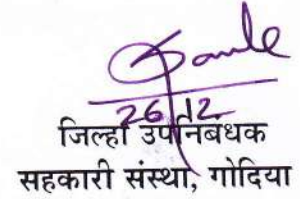 26/12
जिल्हा उपनिबंधक
सहकारी संस्था, गोंदिया